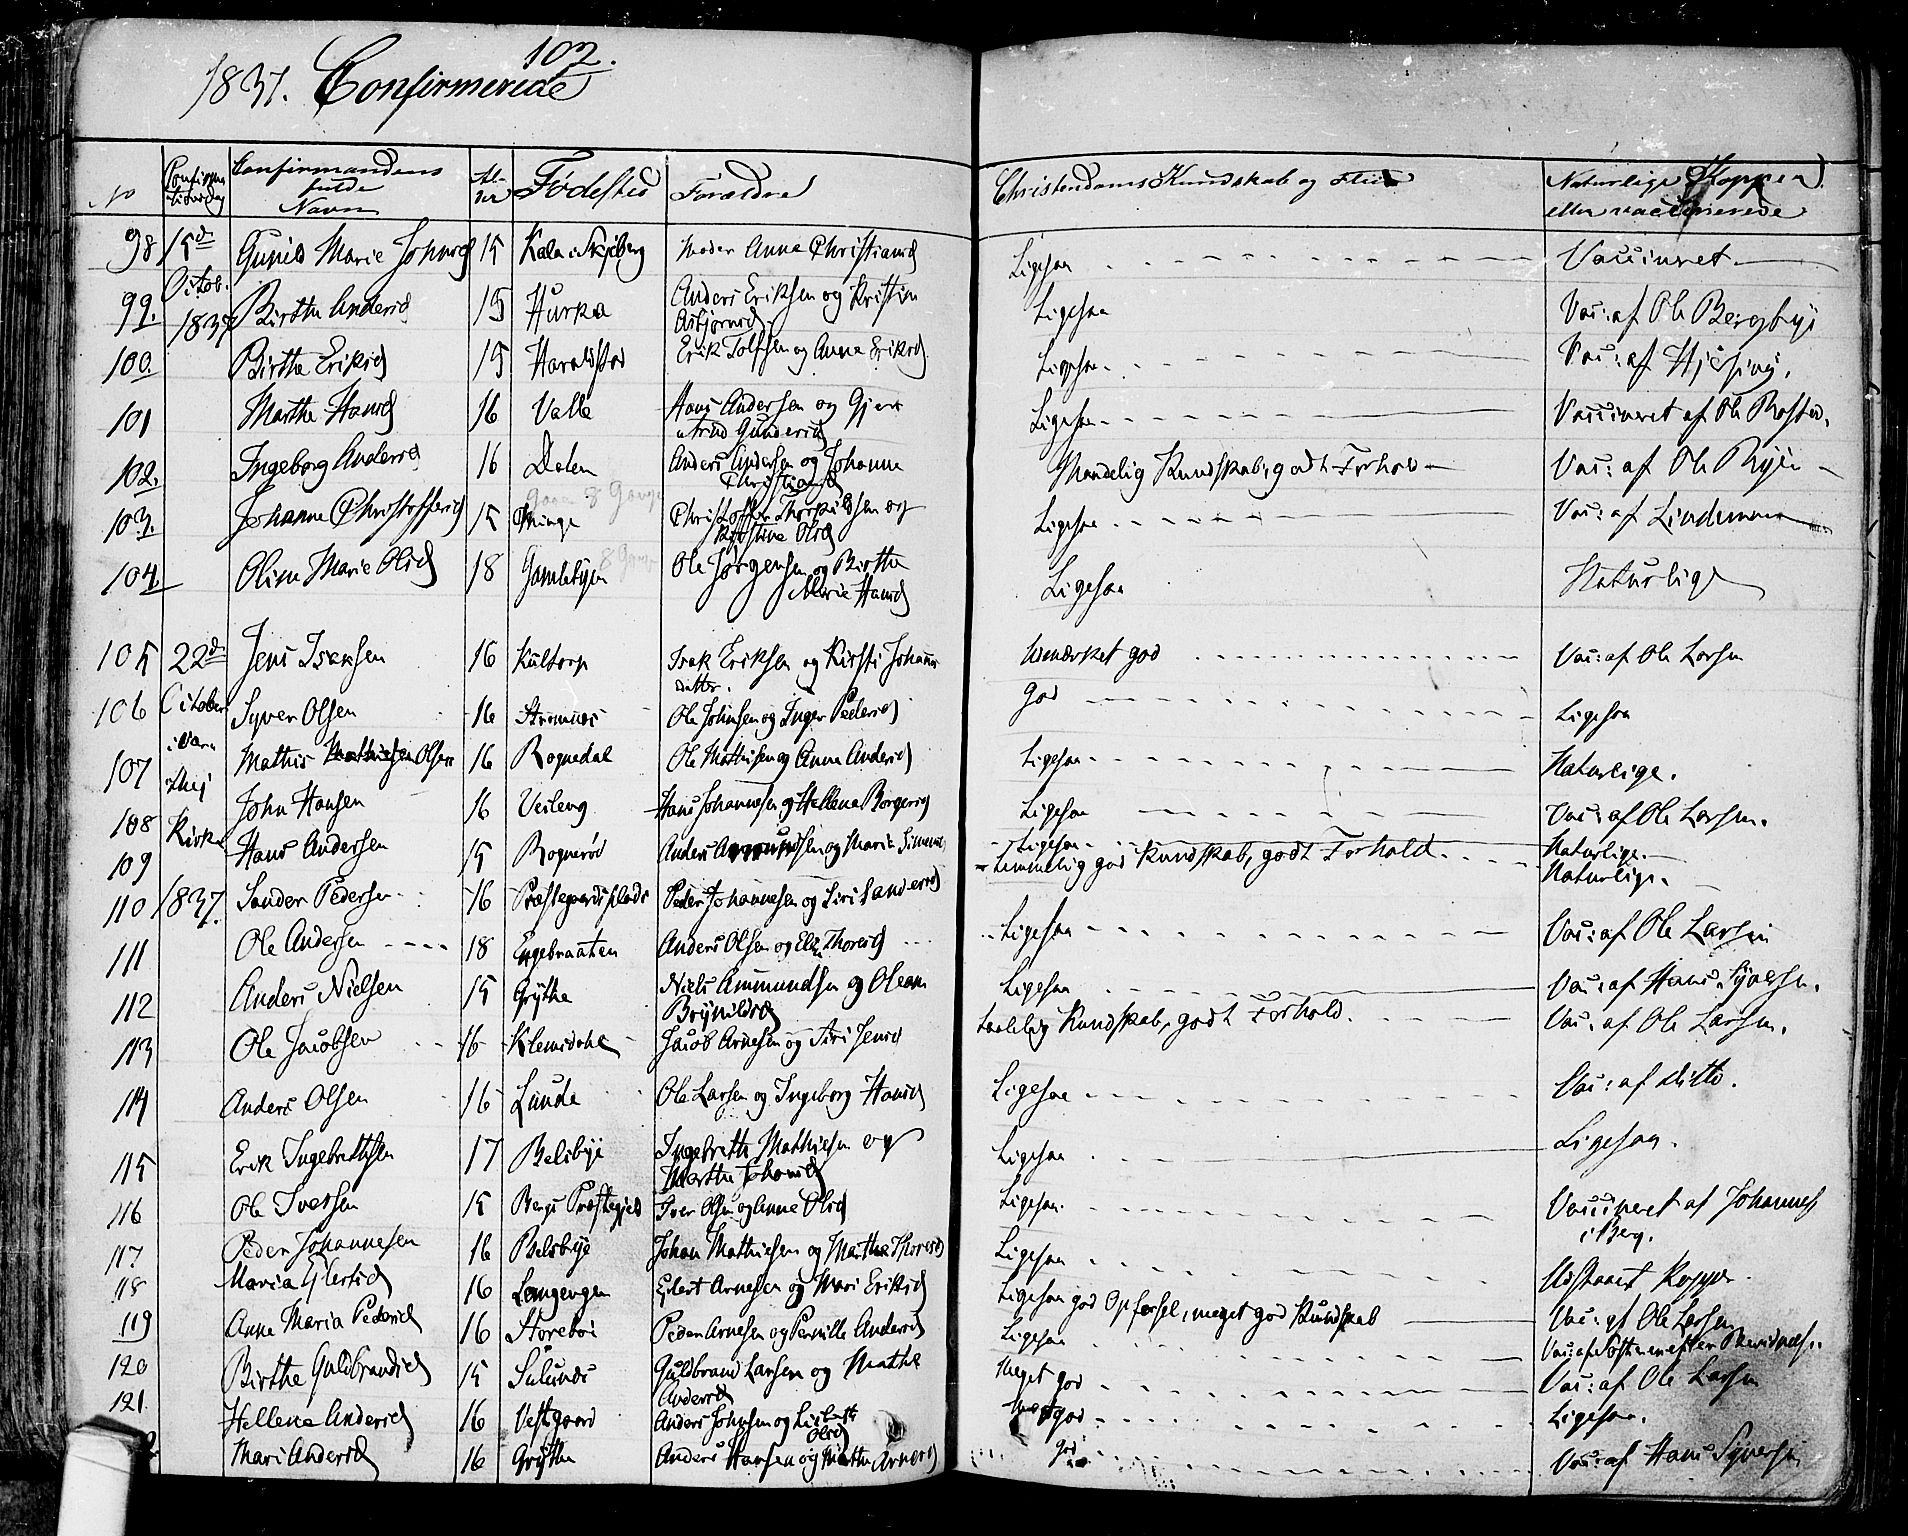 102.
1837. Confirmerede
No Confirmationsdag Confirmandens fulde Navn Alder Fødested Forældre Christendoms Kundskab og Flid Naturlige Kopper eller vaccinerede
98 15de Gunild Marie Johnsd 15 Kala i Skjeberg Moder Anna Christiansd Ligesaa Vaccineret
Octob.
99. 1837 Birthe Andersd 15 Hurka Anders Eriksen og Kristin Asbjørnsd Ligesaa Vac: af Ole Bergbye
100. Birthe Eriksd 15 Haraldstad Erik Tolfsen og Anne Eriksd Ligesaa Vac: af
101 Marthe Hansd 16 Valle Hans Andersen og Gjertrud Gundersd Ligesaa Vaccineret af Ole
102. Ingeborg Andersd 16 Dalen Anders Andersen og Johanne Christiansd Maadelig Kundskab, godt Forhold Vac: af Ole Bye
103. Johanne Christoffersd 15 Christoffer Thorkildsen og Kirstine Olsd Ligesaa Vac: af Lindeman
104 Oline Marie Olsd 18 Gamlebyen Ole Jørgensen og Birthe Marie Hansd Ligesaa Naturlige
105 22de Jens Isaksen 16 Kultorp Isak Eriksen og Kirsti Johannesdatter. Udmærket god Vac: af Ole Larsen
106 October Syver Olsen 16 Strømnes Ole Johnsen og Inger Pedersd God Ligesaa
107 i Varn Mathis Mathiesen Olsen 16 Rognedal Ole Mathisen og Anne Andersd Ligesaa Naturlige.
thej
108 John Hansen 16 Vesleng Hans Johannesen og Hellena Borgersd Ligesaa Vac: af Ole Larsen.
Kirke
109 Hans Andersen 15 Rognerød Anders Ammundsen og Marie Simensd Ligesaa Naturlige.
110 1837. Sander Pedersen 16 Præstegaardsplads Peder Johannesen og Siri Sandersd Temmelig god Kundskab, godt Forhold Naturlige.
111 Ole Andersen 18 Engebraaten Anders Olsen og Else Thoresd Ligesaa Vac: af Ole Larsen
112 Anders Nielsen 15 Grythe Niels Ammundsen og Oleane Brynildsd Ligesaa Vac: af Hans Syversen.
113 Ole Jacobsen 16 Klemsdahl Jacob Arnesen og Siri Jensd taalelig Kundskab, godt Forhold. Vac: af Ole Larsen.
114 Anders Olsen 16 Lunde Ole Larsen og Ingeborg Hansd Ligesaa Vac: af ditto.
115 Erik Ingebrethsen 17 Belsbye Ingebreth Mathiesen og Marthe Johansd Ligesaa Ligesaa.
116 Ole Iversen 15 Bergs Præstegjeld Iver Olsen og Anne Olsd Ligesaa. Vaccineret af Johannes i Berg.
117 Peder Johannesen 16 Belsbye Johan Mathiesen og Marthe Thoresd Ligesaa Udstaaet Kopper.
118 Maria Ejlertsd 16 Langengen Ejlert Arnesen og Mari Eriksd Ligesaa god Opførsel, meget god Kundskab Vac: af Ole Larsen
119 Anne Maria Pedersd 16 Storebøe Peder Arnesen og Pernille Andersd Ligesaa Vac: af
120 Birthe Guldbrandsd 15 Sulunds Guldbrand Larsen og Mathe Andersd Meget god Vac: af Ole Larsen
121. Hellene Andersd 16 Vestgaard Anders Johnsen og Lisbeth Olsd god Ligesaa.
Mari Andersd 16 Grythe Anders Hansen og Marthe Arnesd god Vac: af Hans Syversen